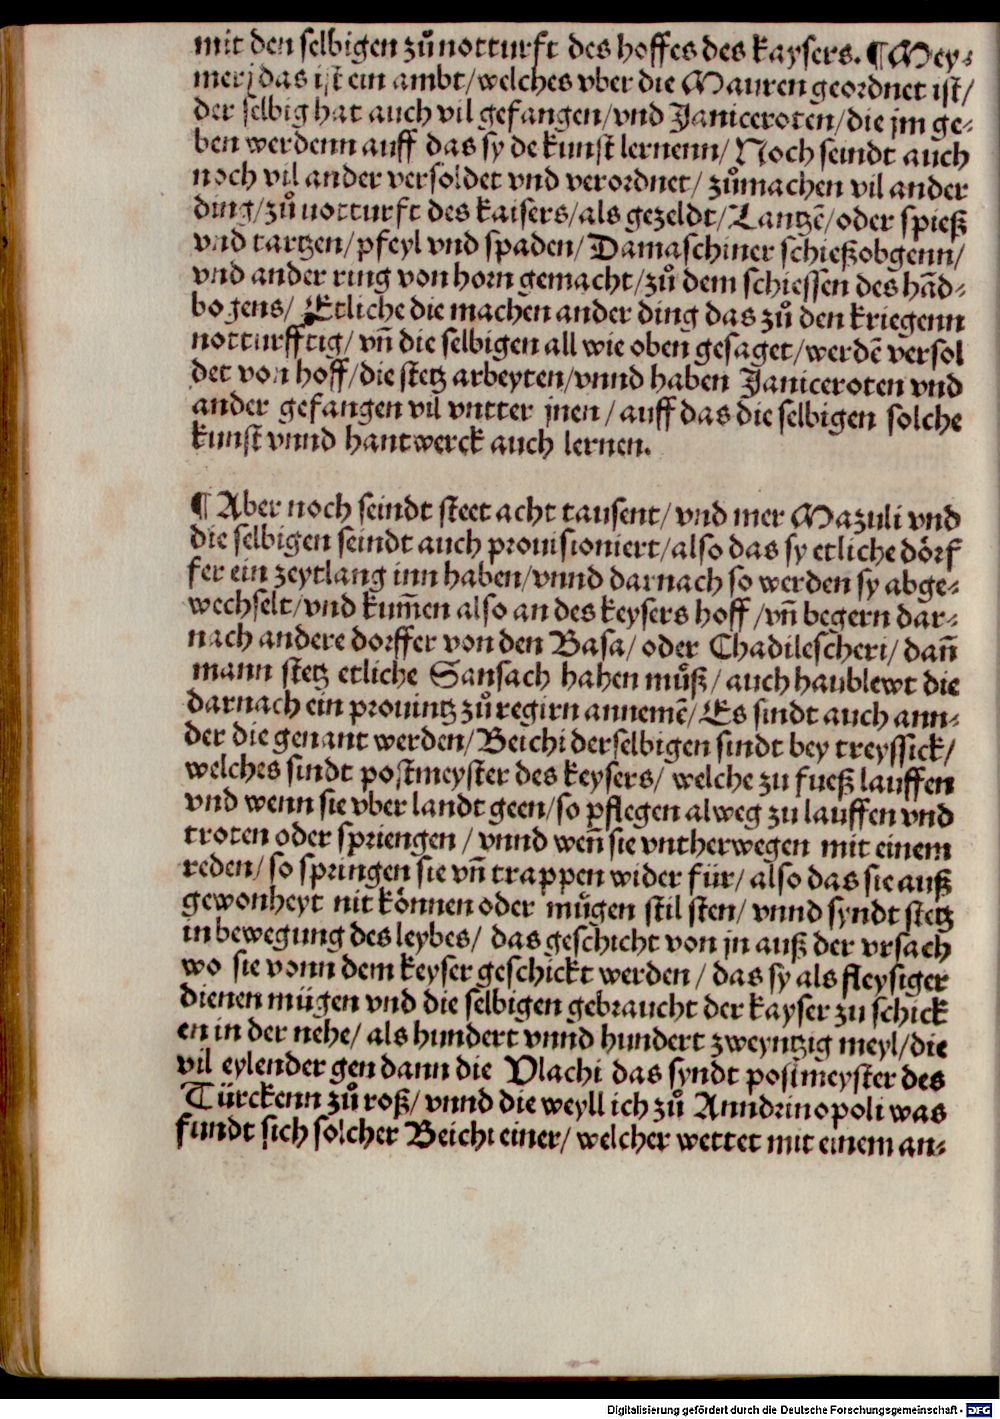 mit den selbigen zůnotturft des hoffes des kaysers. ¶ Mey⸗
meri das ist ein ambt/welches vber die Mauren geordnet ist/
der selbig hat auch vil gefangen/vnd Janiceroten/die jm ge⸗
ben werdenn auff das sy de kunst lernenn/ Noch seindt auch
noch vil ander versoldet vnd verordnet/ zůmachen vil ander
ding/zů notturft des kaisers/als gezeldt/Lantzē/oder spieß
vnd tartzen/pfeyl vnd spaden/Damaschiner schießobgenn/
vnd ander ring von horn gemacht/zů dem schiessen des hād⸗
bogens/ Etliche die machen ander ding das zů den kriegenn
notturfftig/ vñ die selbigen all wie oben gesaget/werdē versol
det von hoff/die stetz arbeyten/vnnd haben Janiceroten vnd
ander gefangen vil vntter jnen/auff das die selbigen solche
kunst vnnd hantwerck auch lernen.
¶ Aber noch seindt steet acht tausent/vnd mer Mazuli vnd
die selbigen seindt auch prouisioniert/also das sy etliche dörf
fer ein zeytlang inn haben/vnnd darnach so werden sy abge⸗
wechselt/vnd kum̄en also an des keysers hoff/vñ begern dar⸗
nach andere dorffer von den Basa/ oder Chadilescheri/ dañ
mann stetz etliche Sansach hahen můß/auch haublewt die
darnach ein prouintz zů regirn annemē/ Es sindt auch ann⸗
der die genant werden/Beichi derselbigen sindt bey treyssick/
welches sindt postmeyster des keysers/ welche zu fueß lauffen
vnd wenn sie vber landt geen/so pflegen alweg zu lauffen vnd
troten oder spriengen/vnnd weñ sie vntherwegen mit einem
reden/so springen sie vñ trappen wider für/also das sie auß
gewonheyt nit können oder můgen stil sten/vnnd syndt stetz
in bewegung des leybes/ das geschicht von jn auß der vrsach
wo sie vonn dem keyser geschickt werden/das sy als fleysiger
dienen mügen vnd die selbigen gebraucht der kayser zu schick
en in der nehe/als hundert vnnd hundert zweyntzig meyl/die
vil eylender gen dann die Vlachi das syndt postmeyster des
Türckenn zů roß/vnnd die weyll ich zů Anndrinopoli was
fundt sich solcher Beichi einer/welcher wettet mit einem an⸗
Digitalisierung gefördert durch die Deutsche Forschungsgemeinschaft - DFG